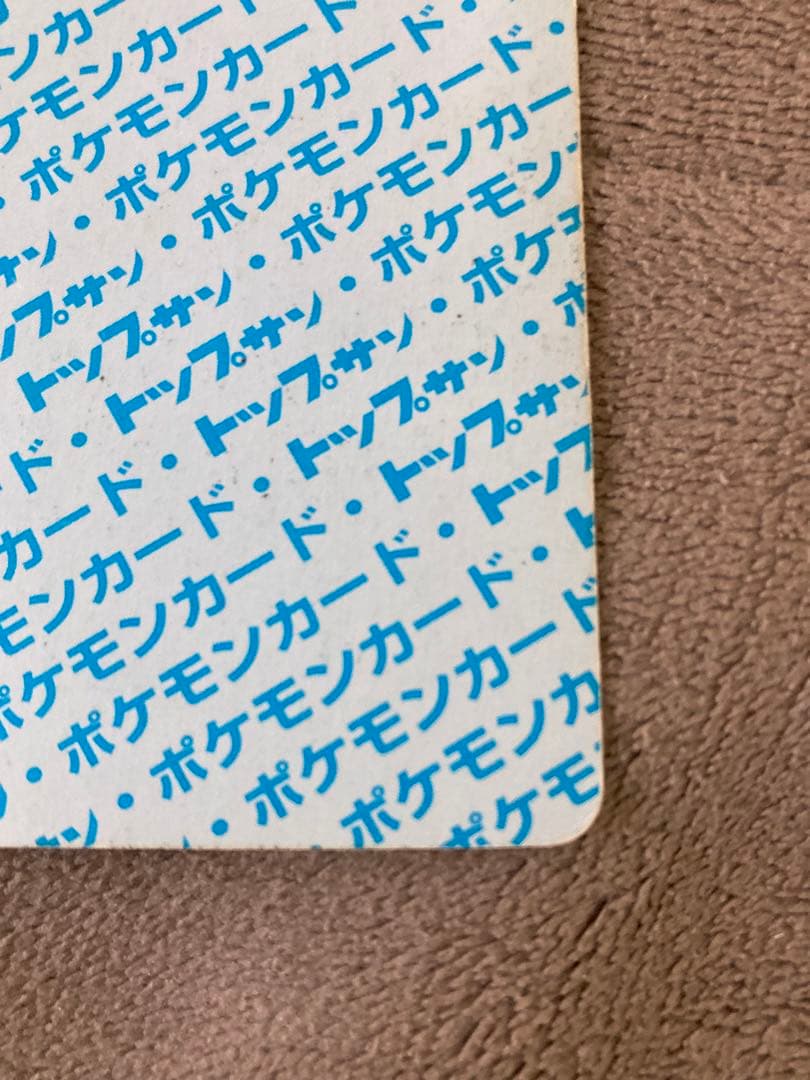 モンカード
ケモンカード・
・ポケモンカード・
サン・ポケモンカード・
トップサン・ポケモンカー
トップサン・ポケモン
ド・トップサン・ポケモ
カード・トップサン・ポ
モンカード・トップサン
ポケモンカード・トップ
・ポケモンカード・ト
サン・ポケモンカード
・ポケモンカ
ポケモ